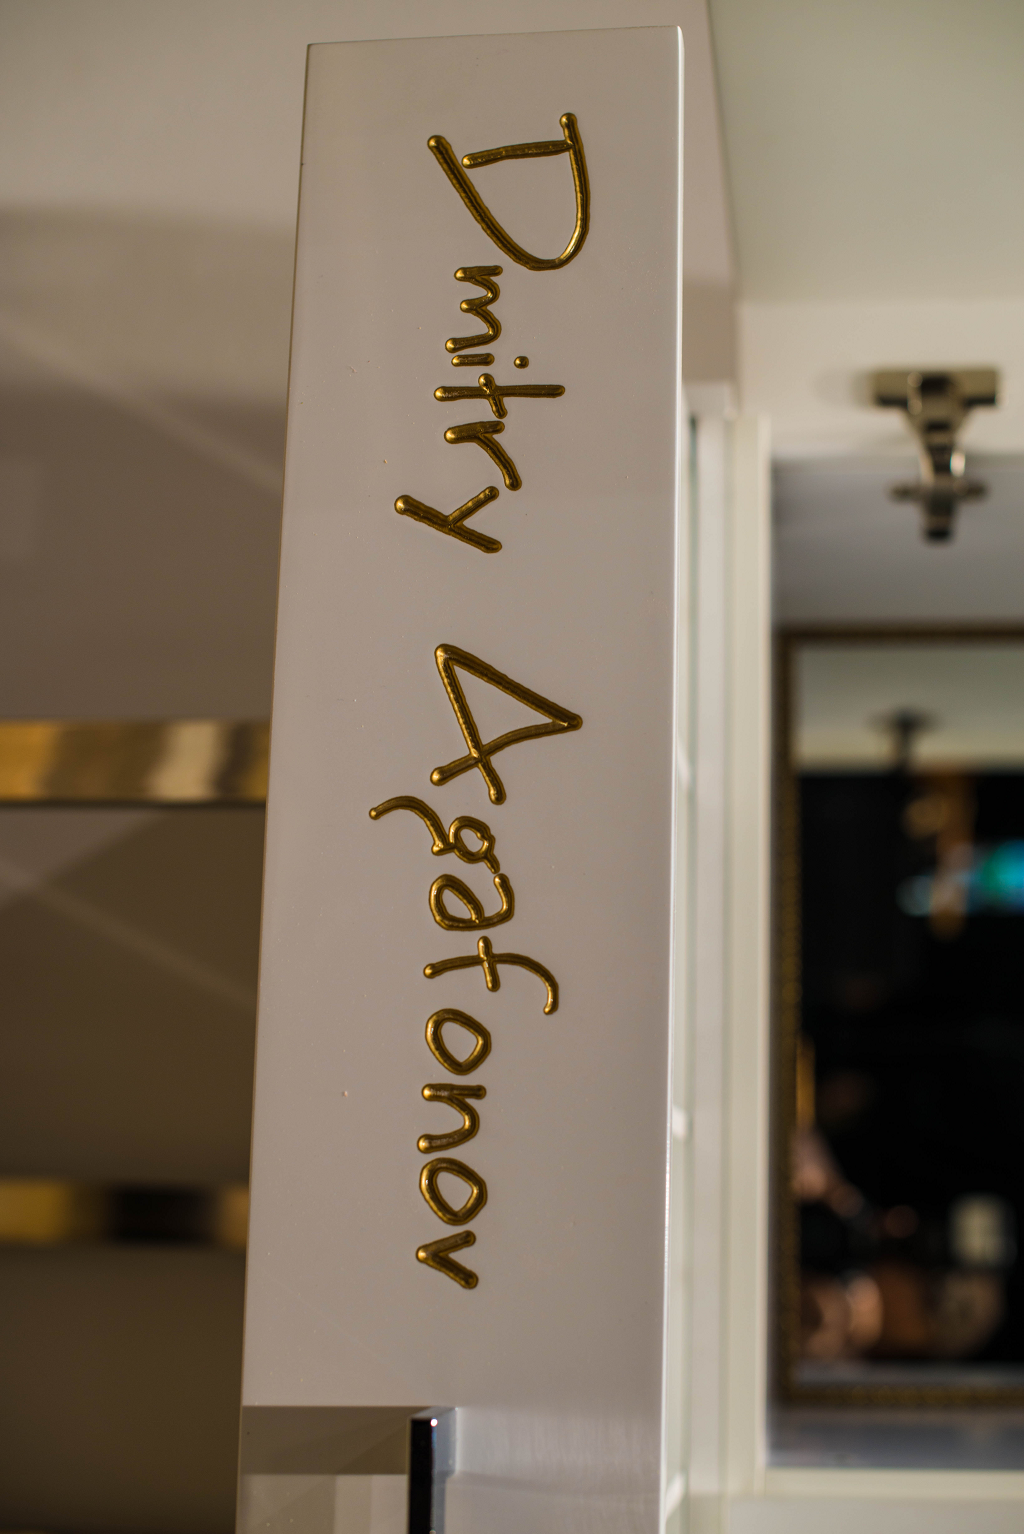 Dmitry Agafonov